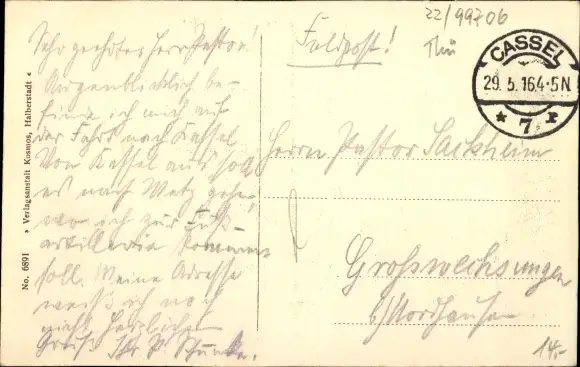 Sehr geehrter Herr Pastor!
Augenblicklich be-
finde ich mich auf
der Fahrt nach Kassel
Von Kassel aus soll
es nach Metz gehen,
wo ich zur Fuß-
artillerie kommen
soll. Meine Adresse
weiß ich noch
nicht. Herzlichst
Grüß Ihr P.
No. 6891 » Verlagsanstalt Kosmos, Halberstadt «
Feldpost!
22/99706
Thü
CASSEL
29.5.16.4-5N.
* 7 r
Herrn Pastor Sackheim
Großwechsungen
b/Nordhausen
14.-